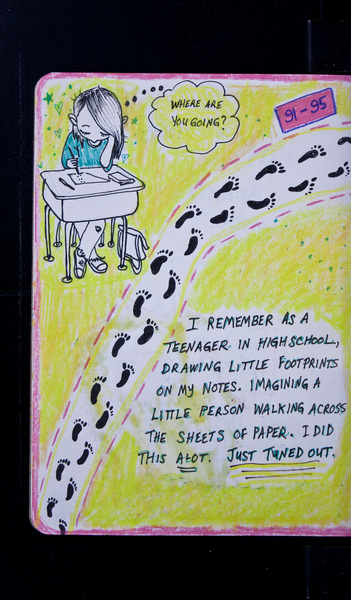 WHERE ARE
YOU GOING?
91-95
I REMEMBER AS A
TEENAGER IN HIGH SCHOOL,
DRAWING LITTLE FOOTPRINTS
ON MY NOTES. IMAGINING A
LITTLE PERSON WALKING ACROSS
THE SHEETS OF PAPER. I DID
THIS ALOT. JUST TUNED OUT.